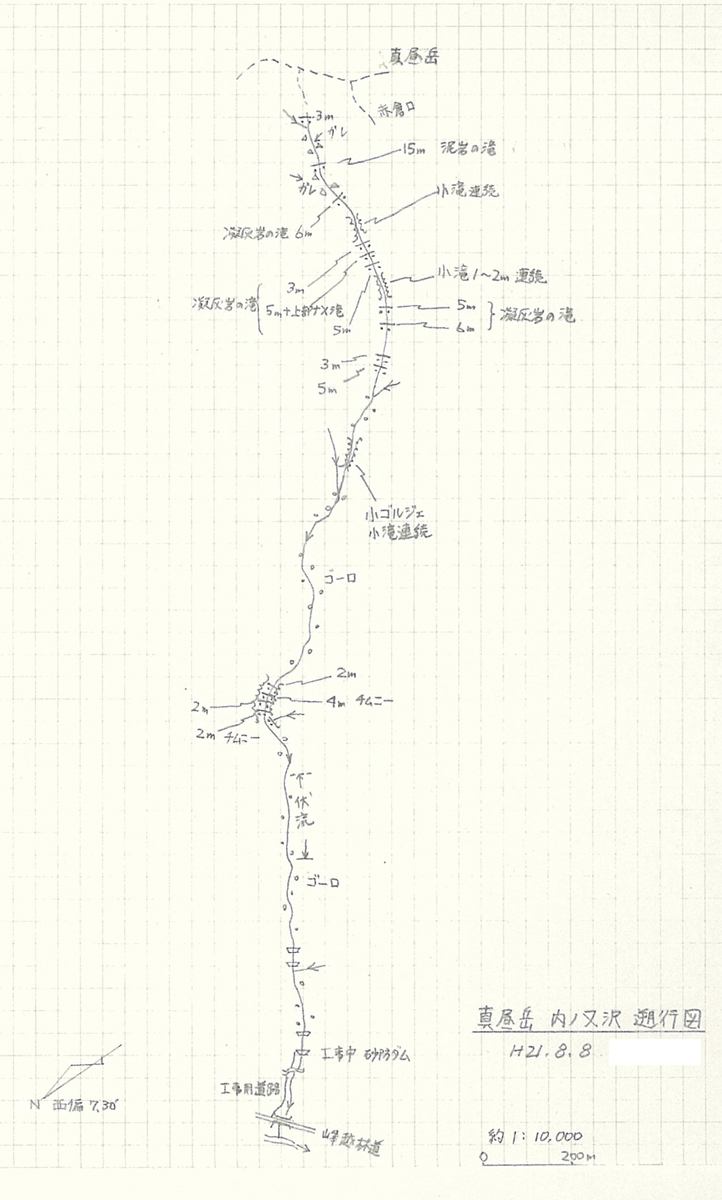 真昼岳
赤倉口
3m
ガレ
15m 泥岩の滝
ガレ
小滝連続
凝灰岩の滝 6m
小滝1〜2m 連続
3m
凝灰岩の滝
5m+上部ナメ滝
5m
5m
6m
凝灰岩の滝
3m
5m
小ゴルジェ
小滝連続
ゴーロ
2m
4m チムニー
2m
2m チムニー
伏
流
ゴーロ
真昼岳 内ノ又沢 遡行図
H21.8.8
工事中 砂防ダム
工事用道路
N 西偏 7.30'
峰越林道
約 1:10,000
0 200m